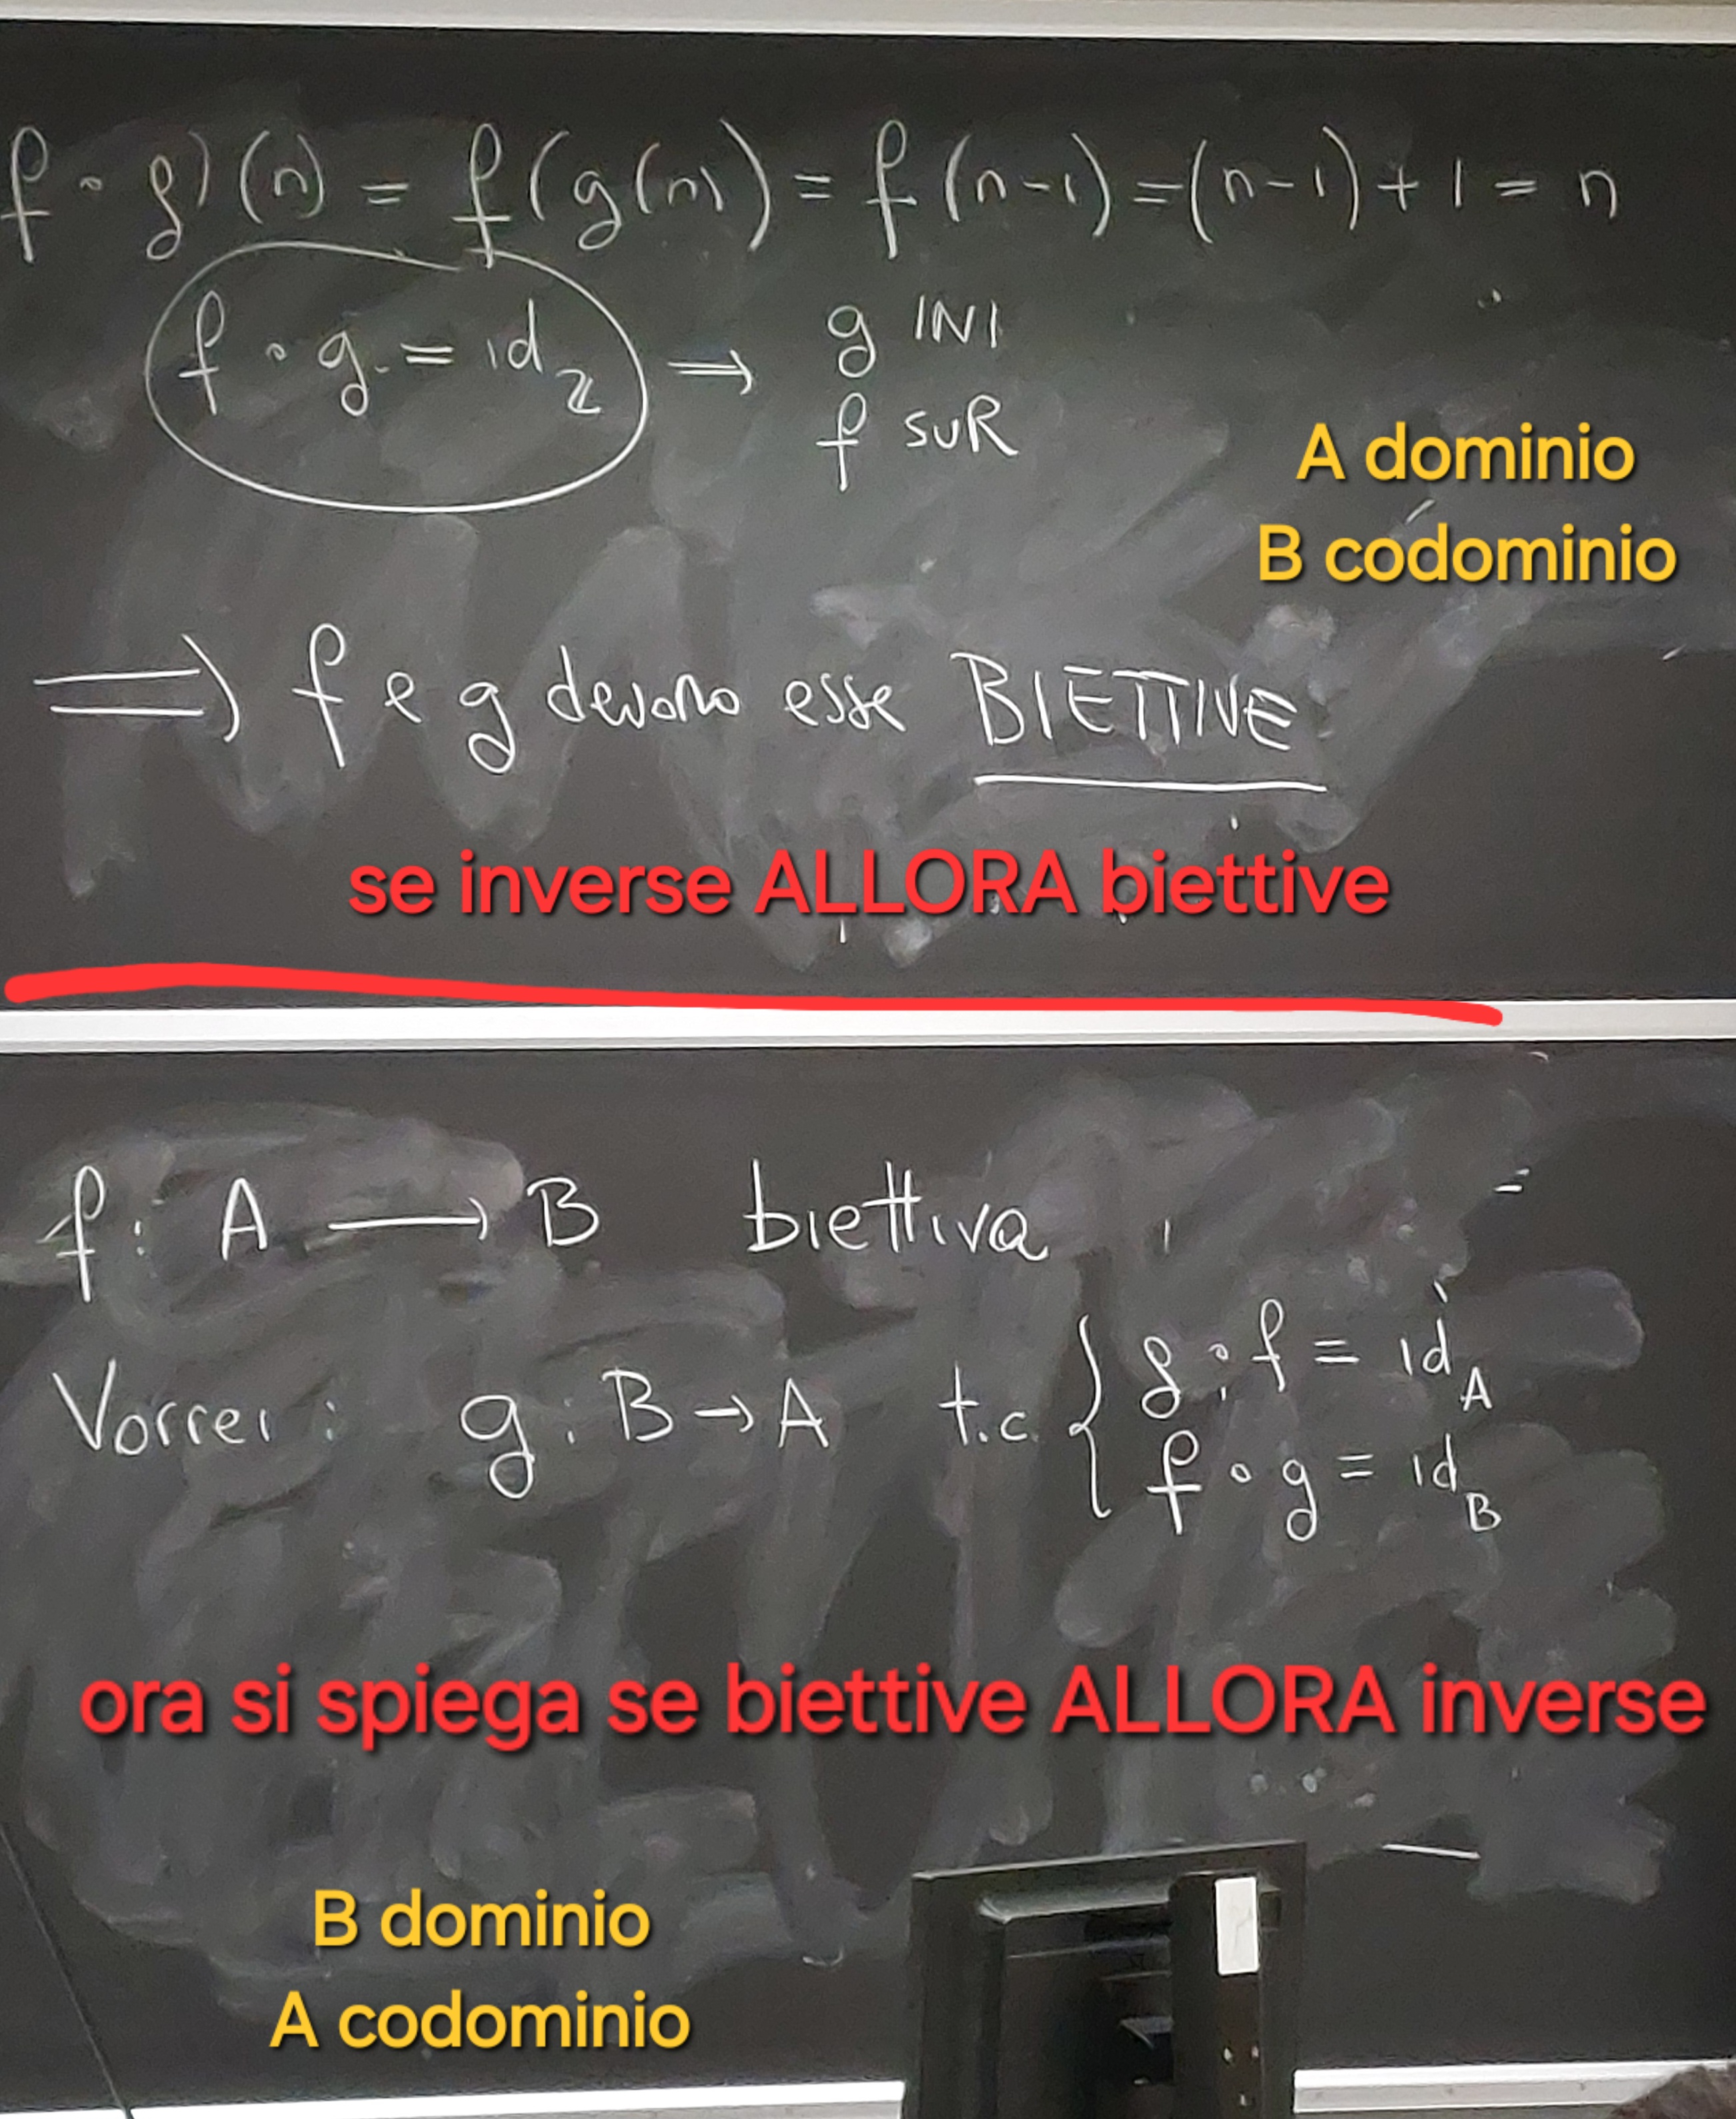 f ∘ g) (n) = f(g(n)) = f(n-1) = (n-1)+1 = n
f ∘ g = id_ℤ ⟹ g INI
f SUR
A dominio
B codominio
⟹ f e g devono esse BIETTIVE
se inverse ALLORA biettive
f: A ⟶ B biettiva
Vorrei: g: B → A t.c. { g ∘ f = id_A
f ∘ g = id_B
ora si spiega se biettive ALLORA inverse
B dominio
A codominio